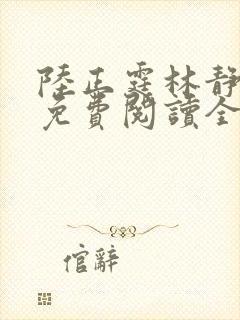 陸正霆林靜
免費閱讀全
倌辭